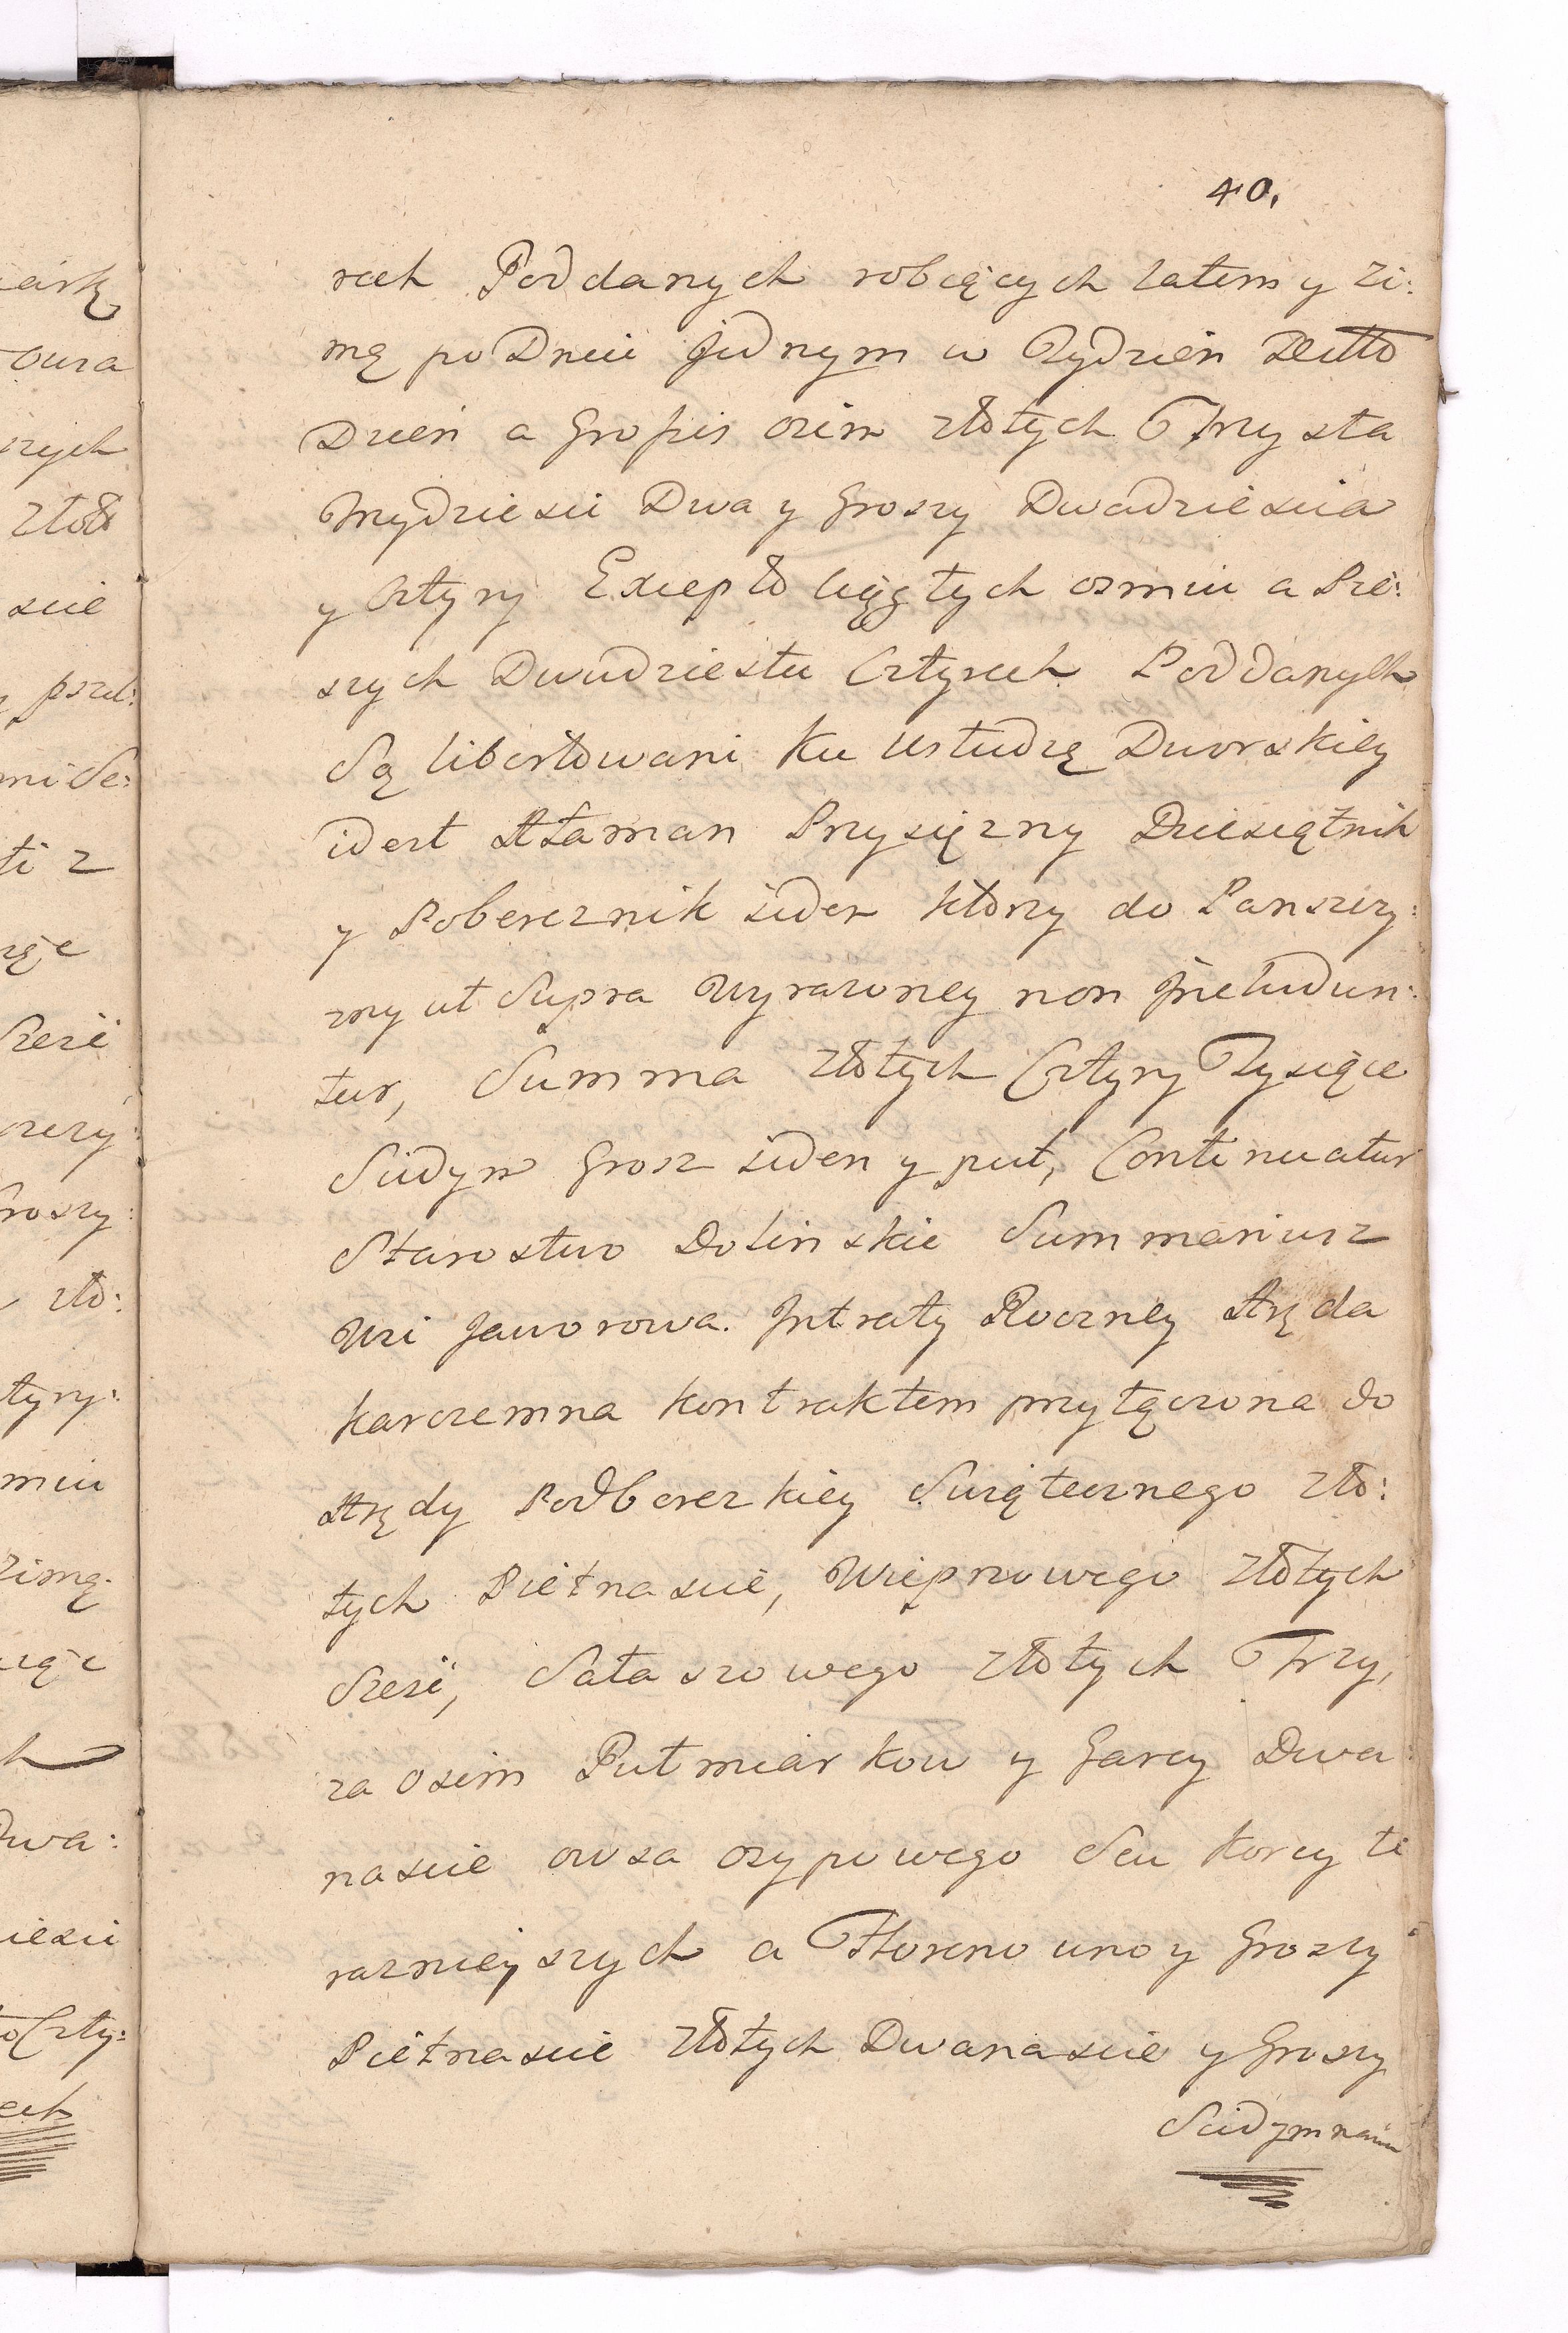 40.
rech Poddanych robiących latem y zi:
mą po Dniu jednym w Tydzień Detto
Dzień a Groszis ośim złotych Trzysta
trzydziesci Dwa y Groszy Dwadziescia
y Cztyry Excepto ciągłych osmiu a Pie:
szych Dwudziestu Cztyrech Poddanych
Są libertowani ku Usłudzę Dworskiey
idest Ataman Przysiężny Dziesiętnik
y Pobereznik ieden który do Panszczy:
zny ut Supra wyrazoney non Jncludun:
tur, Summa złotych Cztyry Tysiące
Siedym Grosz ieden y puł, Continuatur
Starostwo Dolinskie Summariusz
Wsi Jaworowa. Jntraty Roczney Aręda
karczemna kontraktem przyłączona do
Arędy Podberezkiey Swiątecznego zło:
tych Pietnascie, Wieprzowego złotych
Sześć, Sałaszowego złotych Trzy,
za Osim Putmiarkow y Garcy Dwa:
nascie owsa osypowego Seu korcy te
raznieyszych a Floreno uno y Groszy
Pietnascie złotych Dwanascie y Groszy
Siedymnaście
iarką
szych
złoth
scie
pszel:
mi Se:
ti z
Szesć
Groszy:
zło:
tyry:
zimą
Dwa:
iesci
to Czty:
rech